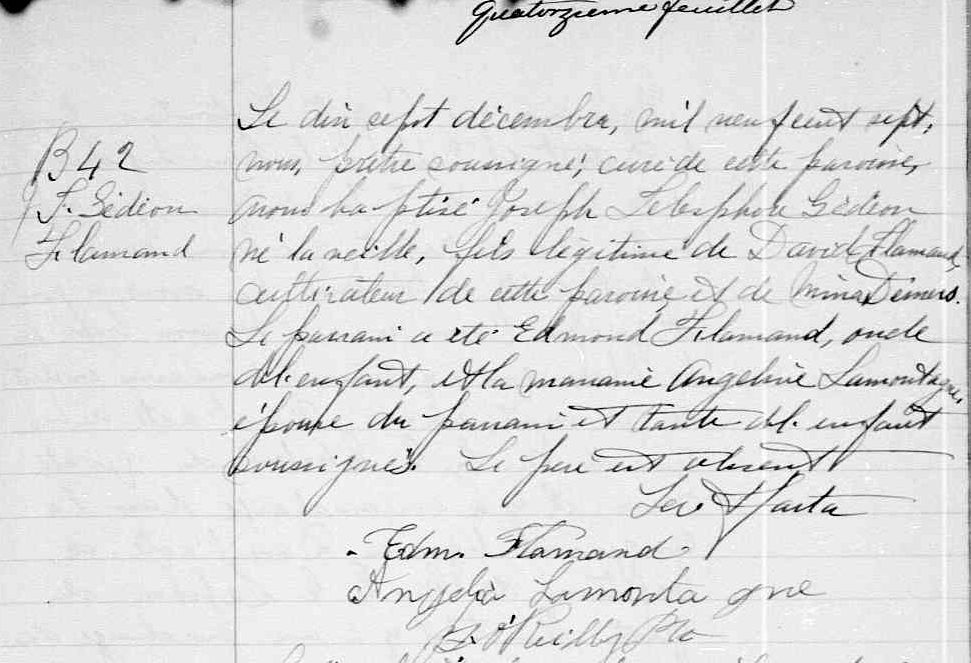 Quatorzieme feuillet
B 42
J. Gédéon
Flamand
Le dix sept décembre, mil neuf cent sept,
nous, prêtre soussigné, curé de cette paroisse,
avons baptisé Joseph Telesphore Gédéon
né la veille, fils légitime de David Flamand,
cultivateur de cette paroisse et de Mina Demers.
Le parrain a été Edmond Flamand, oncle
de l'enfant, et la marraine Angeline Lamontagne,
épouse du parrain et tante de l'enfant
soussignés. Le père est absent
Lecture faite
Edm. Flamand
Angela Lamontagne
O'Reilly Ptre